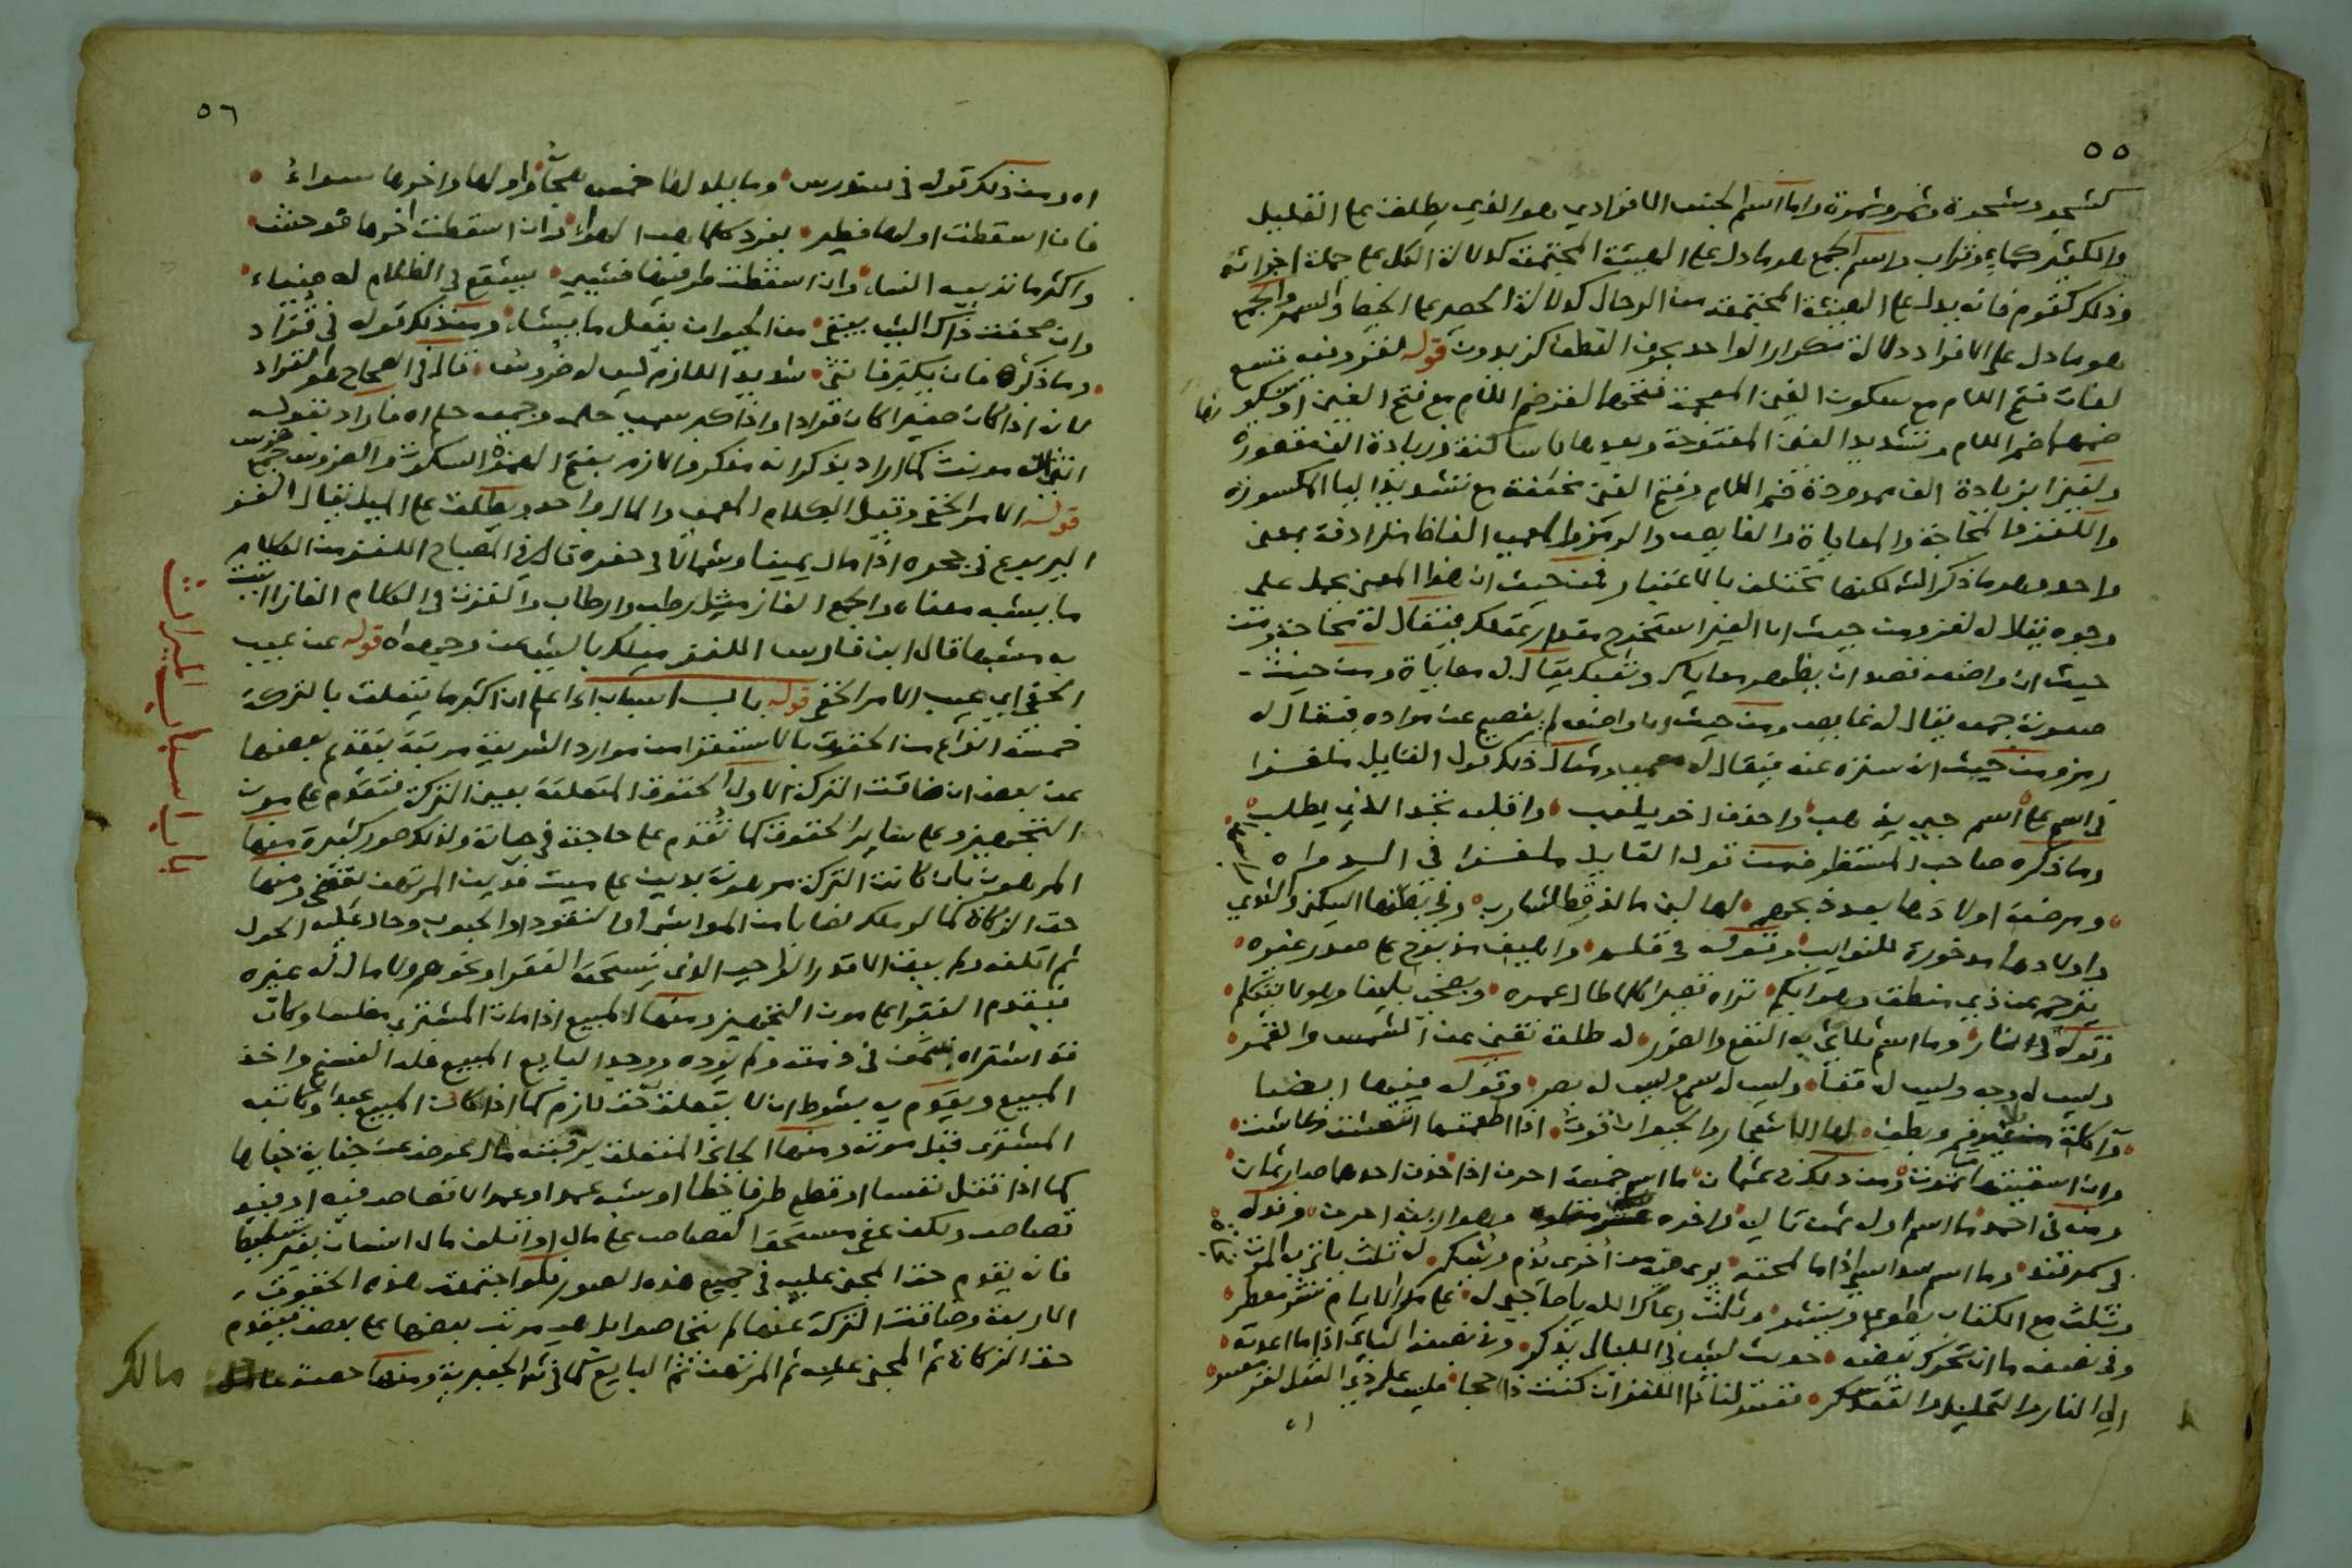 ٥٥
كشجر وشجرة وثمر وثمرة واما اسم الجنس الافرادي وهو الذي يطلق على القليل
والكثير كماء وتراب واسم الجمع هو ما دل على الهيئة المجتمعة كدلالة الكل على جملة اجزائه
وذلك كقوم فانه يدل على الهيئة المجتمعة من الرجال كدلالة الحصير على الخيط والسمر والجمع
هو ما دل على الافراد دلالة تكرار الواحد بحرف العطف كزيدون قوله لغز وفيه تسع
لغات فتح اللام مع سكون الغين المعجمة وفتحها لغز ضم اللام مع فتح الغين او سكونها
ضمها ضم اللام وتشديد الغين المفتوحة وبعدها ياء ساكنة وزيادة الف مقصورة
ولغيزا بزيادة الف ممدودة ضم اللام وفتح الغين مخففة مع تشديد الياء المكسورة
واللغز والمحاجة والمعاياة والعويص والرمز والمعمى الفاظ مترادفة بمعنى
واحد وهو ما ذكر الشـ لكنها تختلف بالاعتبار فمن حيث ان هذا المعنى يحمل على
وجوه يقال له لغز ومن حيث ان الغير استخرج مقدار عقلك فيقال له محاجة ومن
حيث ان واضعه قصد ان يظهر معاياك وتعبك يقال له معاياة ومن حيث
صعوبة فهمه يقال له عويص ومن حيث ان واضعه لم يفصح عن مراده فيقال له
رمز ومن حيث انه ستره عنه فيقال له معمى ومثال ذلك قول القايل ملغزا
في اسم على اسم حبيبي واحذف اخر يلعب واقلب تجد الذي يطلب
وما ذكره صاحب المستظرف من قول القايل ملغزا في السـ
ومرضعة اولادها بعد ذبحهم لها لبن ما لذ قط لشارب وفي بطنها السكين والثدي
واولادها مدخورة للنوايب وقوله في قلم واهيف مذبوح على صدر غيره
يترجم عن ذي منطق وهو ابكم تراه قصيرا كلما طال عمره ويضحى بليغا وهو لا يتكلم
وقوله في النار وما اسم ثلاثي به النفع والضرر له طلعة تغني عن الشمس والقمر
وليس له وجه وليس له قفا وليس له سمع وليس له بصر وقوله فيها ايضا
وآكلة بغير فم وبطن لها الاشجار والحيوان قوت اذا اطعمتها انتعشت وعاشت
وان اسقيتها ماء تموت ومن ذلك في عثمان ما اسم خمسة احرف اذا حذفت احدها صار ثمان
ومنه في احمد ما اسم اوله ثمن تاليه واخره وهو اربعة احرف وقوله
في وما اسم سداسي اذا ما لمحته ترى فيه من اخرى يذم ويشكر له ثلث
وثلث مع الكتاب يطوى وينشر وثلث رعاك الله يا صاحبي له على مدى الايام نشر معطر
وفي نصفه ما ان تحرك بعضه حديث في الليالي يذكر وفي نصفه الثاني اذا ما اعدته
الى النار والتحليل والتعقد سكر ففسر لنا ذا اللغز ان كنت ذا حجا فليس على ذي العقل لغز معسر
اه
٥٦
اه ومن ذلك قوله في سنورس وما بلد لها خمس هجاؤها واولها واخرها سواء
فان اسقطت اولها فطير يغرد كلما هب الهواء وان اسقطت اخرها فوحش
واكثر ما تربيه النساء وان اسقطت طرفيها فشيء يشع في الظلام له ضياء
وان صحفت ذاك الشيء يبقى من الحيوان يفعل ما يشاء ومن ذلك قوله في قراد
وما ذكر فان يكبر فانثى شديد اللازم ليس له ضروس قال في الصحاح هو القراد
لانه اذا كان صغيرا كان قرادا واذا كبر سمي حلمة وجمعه حلم اه فاراد بقوله
انثى انه مونث كما اراد بذكر انه مذكر والازم بفتح الهمزة السكوت والضروس جمع ضرس
قوله الامر الخفي وقيل الكلام المعمى والمال واحد ويطلق على الميل يقال الغز
اليربوع في جحره اذا مال يمينا وشمالا في حفره قال في المصباح اللغز من الكلام
ما يشبه معناه والجمع الغاز مثل رطب وارطاب والغزت في الكلام الغازا اتيت
به مشبها قال ابن فارس اللغز ميلك بالشيء عن وجهه اه قوله عن عيب
الخفي اي عيب الامر الخفي قوله باب اسباب اه اعلم ان اكثر ما يتعلق بالتركة
خمسة انواع من الحقوق بالاستقرا من موارد الشريعة مرتبة يتقدم بعضها
عن بعض ان ضاقت التركة الاول الحقوق المتعلقة بعين التركة فتقدم على مون
التجهيز وعلى سائر الحقوق كما تقدم على حاجته في حياته ولذلك صور كثيرة منها
المرهون بان كانت التركة مرهونة بدين على ميت فدين المرتهن يقضى ومنها
حق الزكاة كما لو ملك نصابا من المواشي او النقود او الحبوب وحال عليه الحول
ثم اتلفه ولم يبق الا قدر الواجب الذي يستحقه الفقرا ونحوهم ولا مال له غيره
فيقدم الفقرا على مون التجهيز ومنها المبيع اذا مات المشتري مفلسا وكان
قد اشتراه بثمن في ذمته ولم يؤده ووجد البايع المبيع فله الفسخ واخذ
المبيع ويقدم به بشرط ان لا يتعلق حق لازم كما اذا كان المبيع عبدا وكاتبه
المشتري قبل موته ومنها الجاني المتعلق برقبته مال عوضه عن جناية جناها
كما اذا قتل نفسا او قطع طرفا خطا او شبه عمد او عمد لا قصاص فيه او فيه
قصاص ولكن عفى مستحق القصاص على مال او اتلف مال انسان بغير تسليط
فانه يقدم حق المجني عليه في جميع هذه الصور فلو اجتمعت هذه الحقوق
الاربعة وضاقت التركة عنها لم يتحاصوا بل هو مرتب بعضها على بعض فيقدم
حق الزكاة ثم المجني عليه ثم المرتهن ثم البايع كما في شـ الجعبرية ومنها حصة عامل
مالك
باب اسباب الميراث